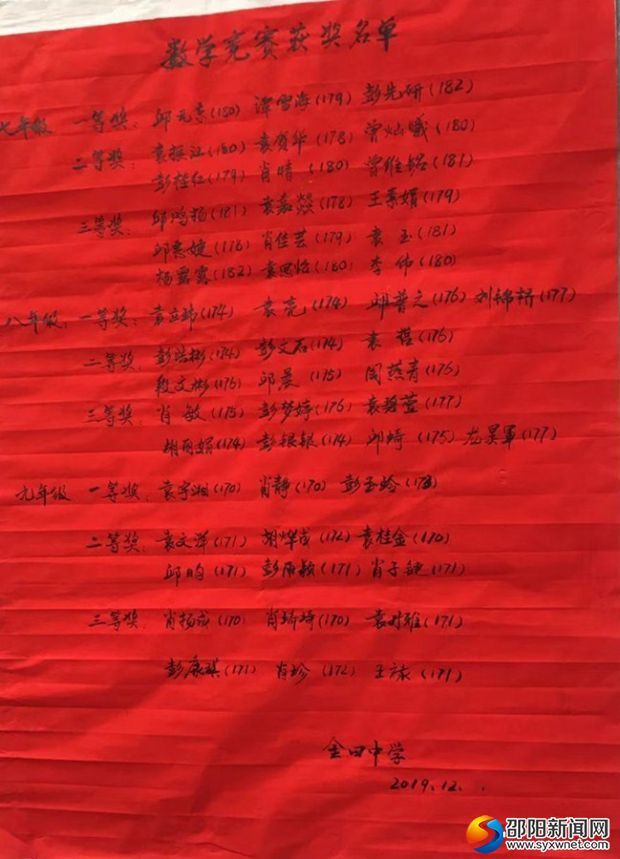 数学竞赛获奖名单
七年级 一等奖: 邱元吉(180) 谭雪海(179) 彭先妍(182)
二等奖: 袁振江(180) 袁贺华(178) 曾灿曦(180)
彭桂红(179) 肖晴(180) 曾维铭(181)
三等奖: 邱鸿扬(181) 袁嘉燚(178) 王素娟(179)
邱惠婕(178) 肖佳芸(179) 袁玉(181)
杨露露(182) 袁思怡(180) 李伟(180)
八年级: 一等奖: 袁立玮(174) 袁亮(174) 邱普之(176) 刘锦桥(177)
二等奖: 彭浩彬(174) 彭文石(174) 袁蓓(176)
段文彬(176) 邱晨(175) 闵燕青(176)
三等奖: 肖敏(175) 彭梦婷(176) 袁碧莹(177)
胡丽娟(174) 彭银银(174) 邱崎(175) 龙昊军(177)
九年级 一等奖: 袁宇湘(170) 肖静(170) 彭玉玲(173)
二等奖: 袁文萍(171) 胡烨成(172) 袁桂金(170)
邱昀(171) 彭丽敏(171) 肖子健(171)
三等奖: 肖扬成(170) 肖瑜琦(170) 袁雅(171)
彭康琪(171) 肖珍(172) 王(171)
金田中学
2019.12.
邵阳新闻网
www.syxwnet.com